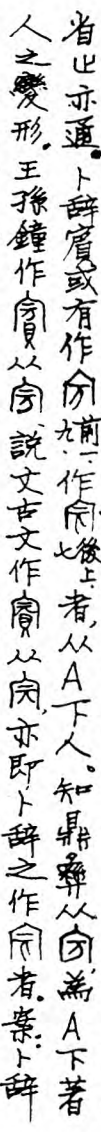 省止亦通。卜辭賓或有作𡧍前一、九、作㝐後上、七、者，从A下人。知鼎彝从𡧍，為A下著
人之變形。王孫鐘作賓从𡧍，說文古文作賓从㝐，亦即卜辭之作㝐者。案：卜辭